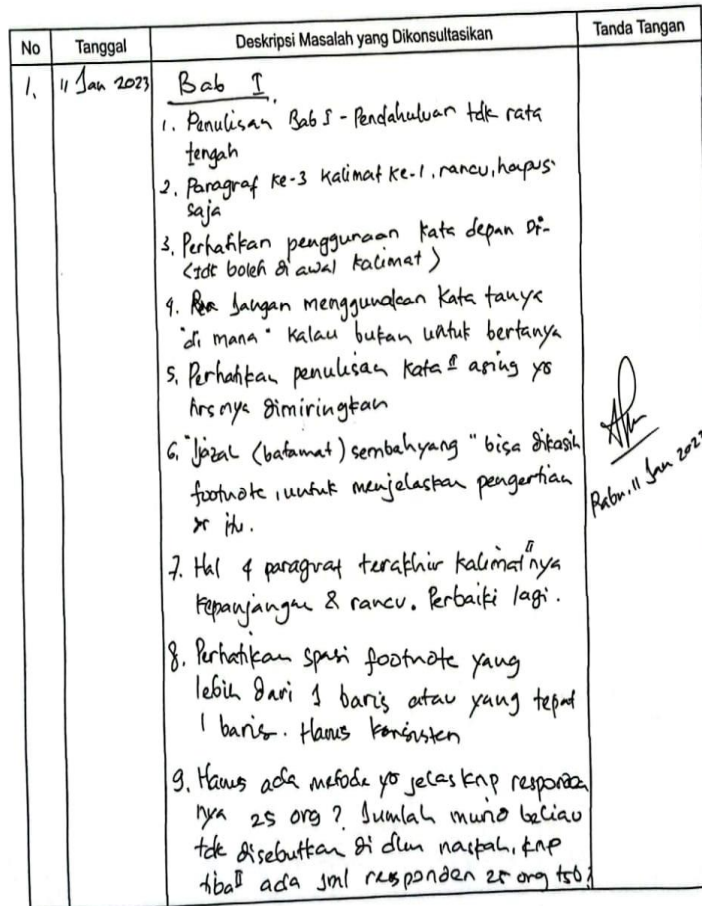 No Tanggal Deskripsi Masalah yang Dikonsultasikan Tanda Tangan
1. 11 Jan 2023 Bab I
1. Penulisan Bab I - Pendahuluan tdk rata
tengah
2. Paragraf ke-3 kalimat ke-1, rancu, hapus
saja
3. Perhatikan penggunaan kata depan Di-
(tdk boleh di awal kalimat)
4. Jangan menggunakan kata tanya
"di mana" kalau bukan untuk bertanya
5. Perhatikan penulisan kata II asing yg
hrsnya dimiringkan
6. "Ijazal (batamat) sembahyang" bisa dikasih
footnote, untuk menjelaskan pengertian
itu.
7. Hal 4 paragraf terakhir kalimat II nya
kepanjangan & rancu. Perbaiki lagi.
8. Perhatikan spasi footnote yang
lebih dari 1 baris atau yang tepat
1 baris. Harus konsisten
9. Harus ada metode yg jelas knp responden
nya 25 org? Jumlah murid beliau
tdk disebutkan di dlm naskah, knp
tiba II ada jml responden 25 org tsb?
Rabu, 11 Jan 2023